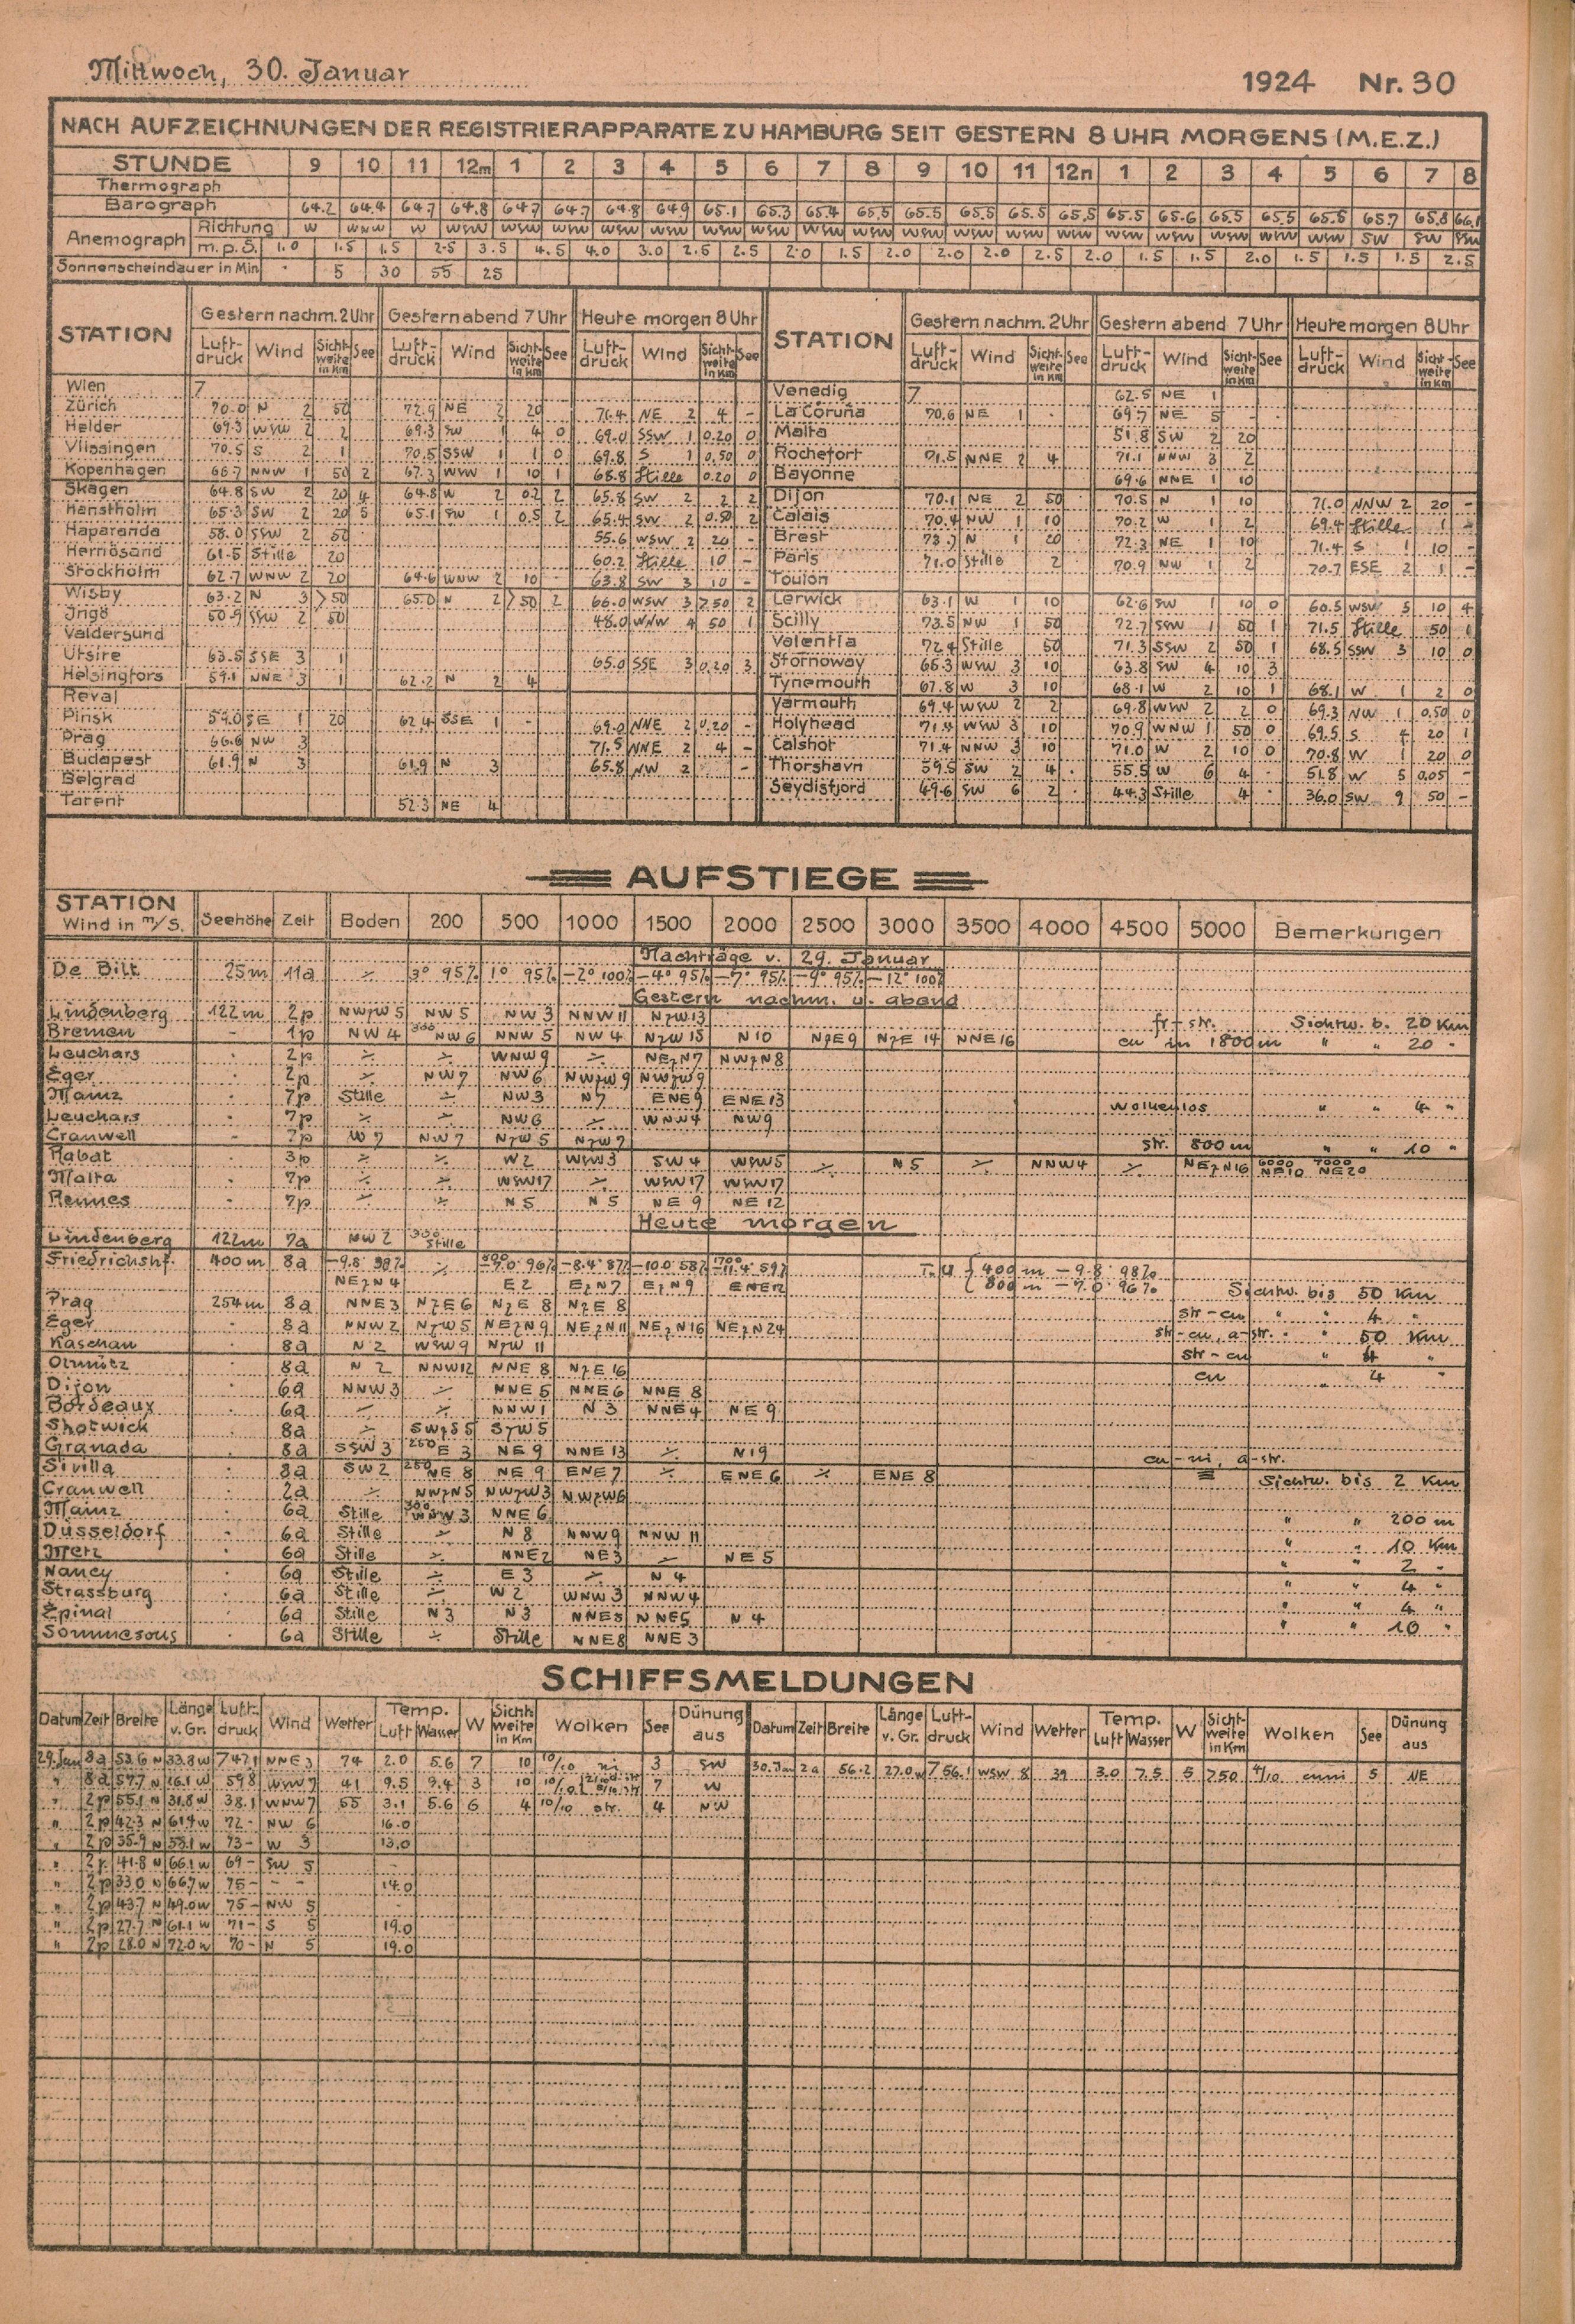 Mittwoch, 30. Januar 1924 Nr. 30
NACH AUFZEICHNUNGEN DER REGISTRIERAPPARATE ZU HAMBURG SEIT GESTERN 8 UHR MORGENS (M.E.Z.)
STUNDE 9 10 11 12m 1 2 3 4 5 6 7 8 9 10 11 12n 1 2 3 4 5 6 7 8
Thermograph
Barograph 64.2 64.4 64.7 64.8 64.7 64.7 64.8 64.9 65.1 65.3 65.4 65.5 65.5 65.5 65.5 65.5 65.5 65.6 65.5 65.5 65.6 65.7 65.8 66.1
Anemograph Richtung W WNW W WSW WSW WSW WSW WSW WSW WSW WSW WSW WSW WSW WSW WSW WSW WSW WSW WSW WSW SW SW SSW
m.p.S. 1.0 1.5 1.5 2.5 3.5 4.5 4.0 3.0 2.5 2.5 2.0 1.5 2.0 2.0 2.0 2.5 2.0 1.5 1.5 2.0 1.5 1.5 1.5 2.5
Sonnenscheindauer in Min. 5 30 55 25
STATION Gestern nachm. 2 Uhr Gestern abend 7 Uhr Heute morgen 8 Uhr STATION Gestern nachm. 2 Uhr Gestern abend 7 Uhr Heute morgen 8 Uhr
Luftdruck Wind Sichtweite in Km See Luftdruck Wind Sichtweite in Km See Luftdruck Wind Sichtweite in Km See Luftdruck Wind Sichtweite in Km See Luftdruck Wind Sichtweite in Km See Luftdruck Wind Sichtweite in Km See
Wien 7 Venedig 7 62.5 NE 1
Zürich 70.0 N 2 50 72.9 NE 2 20 71.4 NE 2 4 - La Coruña 70.6 NE 1 69.7 NE 5 -
Helder 69.3 WSW 2 2 69.3 SW 1 4 0 69.0 SSW 1 0.20 0 Malta 51.8 SW 2 20
Vlissingen 70.5 S 2 1 70.5 SSW 1 1 0 69.8 S 1 0.50 0 Rochefort 71.5 NNE 2 4 71.1 NNW 3 2
Kopenhagen 66.7 NNW 1 50 2 67.3 WNW 1 10 1 68.8 Stille 0.20 0 Bayonne 69.6 NNE 1 10
Skagen 64.8 SW 2 20 4 64.8 W 2 0.2 2 65.8 SW 2 2 2 Dijon 70.1 NE 2 50 70.5 N 1 10 71.0 NNW 2 20 -
Hanstholm 65.3 SW 2 20 5 65.1 SW 1 0.5 2 65.4 SW 2 0.50 2 Calais 70.4 NW 1 10 70.2 W 1 2 69.4 Stille 1 -
Haparanda 58.0 SSW 2 50 55.6 WSW 2 20 - Brest 73.7 N 1 20 72.3 NE 1 10 71.4 S 1 10 -
Hernösand 61.5 Stille 20 60.2 Stille 10 - Paris 71.0 Stille 2 70.9 NW 1 2 70.7 ESE 2 1 -
Stockholm 62.7 WNW 2 20 64.6 WNW 2 10 63.8 SW 3 10 - Toulon
Wisby 63.2 N 3 >50 65.0 N 2 >50 2 66.0 WSW 3 >50 2 Lerwick 63.1 W 1 10 62.6 SW 1 10 0 60.5 WSW 5 10 4
Ingö 50.9 SSW 2 50 48.0 WNW 4 50 1 Scilly 73.5 NW 1 50 72.7 SSW 1 50 1 71.5 Stille 50 1
Valdersund Valentia 72.4 Stille 50 71.3 SSW 2 50 1 68.5 SSW 3 10 0
Utsire 63.5 SSE 3 1 65.0 SSE 3 0.20 3 Stornoway 65.3 WSW 3 10 63.8 SW 4 10 3
Helsingfors 59.1 NNE 3 1 62.2 N 2 4 Tynemouth 67.8 W 3 10 68.1 W 2 10 1 68.1 W 1 2 0
Reval Yarmouth 69.4 WSW 2 2 69.8 WNW 2 2 0 69.3 NW 1 0.50 0
Pinsk 59.0 SE 1 20 62.4 SSE 1 - 69.0 NNE 2 0.20 - Holyhead 71.4 WSW 3 10 70.9 WNW 1 50 0 69.5 S 4 20 1
Prag 66.6 NW 3 71.5 NNE 2 4 - Calshot 71.4 NNW 3 10 71.0 W 2 10 0 70.8 W 1 20 0
Budapest 61.9 N 3 61.9 N 3 65.8 NW 2 - Thorshavn 59.5 SW 2 4 55.5 W 6 4 51.8 W 5 0.05 -
Belgrad Seydisfjord 49.6 SW 6 2 44.3 Stille 4 36.0 SW 9 50 -
Tarent 52.3 NE 4
AUFSTIEGE
STATION Wind in m/S. Seehöhe Zeit Boden 200 500 1000 1500 2000 2500 3000 3500 4000 4500 5000 Bemerkungen
Nachträge v. 29. Januar
De Bilt 25m 11a ./. 3° 95% 1° 95% -2° 100% -4° 95% -7° 95% -9° 95% -12° 100%
Gestern nachm. u. abend
Lindenberg 122m 2p NWzW 5 NW 5 NW 3 NNW 11 NzW 13 fr-str. Sichtw. b. 20 Km
Bremen - 1p NW 4 300 NW 6 NNW 5 NW 4 NzW 15 N 10 NzE 9 NzE 14 NNE 16 cu in 1800m " " 20 "
Leuchars 2p ./. ./. WNW 9 ./. NEzN 7 NWzN 8
Eger 2p ./. NW 7 NW 6 NWzW 9 NWzW 9
Mainz 7p Stille ./. NW 3 N 7 ENE 9 ENE 13 wolkenlos " " 4 "
Leuchars 7p ./. ./. NW 6 ./. WNW 4 NW 9
Cranwell 7p W 7 NW 7 NzW 5 NzW 7 str. 800m " " 10 "
Rabat 3p ./. ./. W 2 WSW 3 SW 4 WSW 5 ./. N 5 ./. NNW 4 ./. NEzN 16 6000 NE 10 7000 NE 20
Malta 7p ./. ./. WSW 17 ./. WSW 17 WSW 17
Rennes 7p ./. ./. N 5 N 5 NE 9 NE 12
Heute morgen
Lindenberg 122m 7a NW 2 300 Stille
Friedrichshf. 400m 8a -9.8° 98% ./. 800 -7.0° 96% -8.4° 87% -10.0° 58% 1700 -11.4° 59% T.U { 400 m -9.8° 98%
NEzN 4 E 2 EzN 7 EzN 9 ENE 12 800 m -7.0° 96% Sichtw. bis 50 Km
Prag 254m 8a NNE 3 NzE 6 NzE 8 NzE 8 str-cu " " 4 "
Eger 8a NNW 2 NzW 5 NEzN 9 NEzN 11 NEzN 16 NEzN 24 str-cu, a-str. " " 50 Km
Kaschau 8a N 2 WSW 9 NzW 11 str-cu " 4 "
Olmütz 8a N 2 NNW 12 NNE 8 NzE 16 cu " 4 "
Dijon 6a NNW 3 ./. NNE 5 NNE 6 NNE 8
Bordeaux 6a ./. ./. NNW 1 N 3 NNE 4 NE 9
Shotwick 8a ./. SWzS 5 SzW 5
Granada 8a SSW 3 250 E 3 NE 9 NNE 13 ./. N 19 cu-ni, a-str.
Sivilla 8a SW 2 250 NE 8 NE 9 ENE 7 ./. ENE 6 ./. ENE 8 ≡ Sichtw. bis 2 Km
Cranwell 2a ./. NWzN 5 NWzW 3 NWzW 6
Mainz 6a Stille 300 WNW 3 NNE 6 " " 200 m
Düsseldorf 6a Stille ./. N 8 NNW 9 NNW 11 " " 10 Km
Metz 6a Stille ./. NNE 2 NE 3 ./. NE 5 " " 2 "
Nancy 6a Stille ./. E 3 ./. N 4 " " 4 "
Strassburg 6a Stille ./. W 2 WNW 3 NNW 4 " " 4 "
Epinal 6a Stille N 3 N 3 NNE 5 NNE 5 N 4 " " 10 "
Sommesous 6a Stille ./. Stille NNE 8 NNE 3
SCHIFFSMELDUNGEN
Datum Zeit Breite Länge v. Gr. Luftdruck Wind Wetter Temp. Luft Wasser W Sichtweite in Km Wolken See Dünung aus Datum Zeit Breite Länge v. Gr. Luftdruck Wind Wetter Temp. Luft Wasser W Sichtweite in Km Wolken See Dünung aus
29. Jan 8a 53.6 N 33.8 W 747.1 NNE 3 74 2.0 5.6 7 10 10/10 ni 3 SW 30. Jan 2a 56.2 27.0 W 756.1 WSW 8 39 3.0 7.5 5 >50 4/10 cuni 5 NE
" 8a 57.7 N 16.1 W 59.8 WSW 7 41 9.5 9.4 3 10 10/10 7 W
" 2p 55.1 N 31.8 W 38.1 WNW 7 55 3.1 5.6 6 4 10/10 str. 4 NW
" 2p 42.3 N 61.4 W 72- NW 6 16.0
" 2p 35.9 N 53.1 W 73- W 3 13.0
" 2p 41.8 N 66.1 W 69- SW 5 -
" 2p 33.0 N 66.7 W 75- - - 14.0
" 2p 43.7 N 49.0 W 75- NW 5
" 2p 27.7 N 61.1 W 71- S 5 19.0
" 2p 28.0 N 72.0 W 70- N 5 19.0